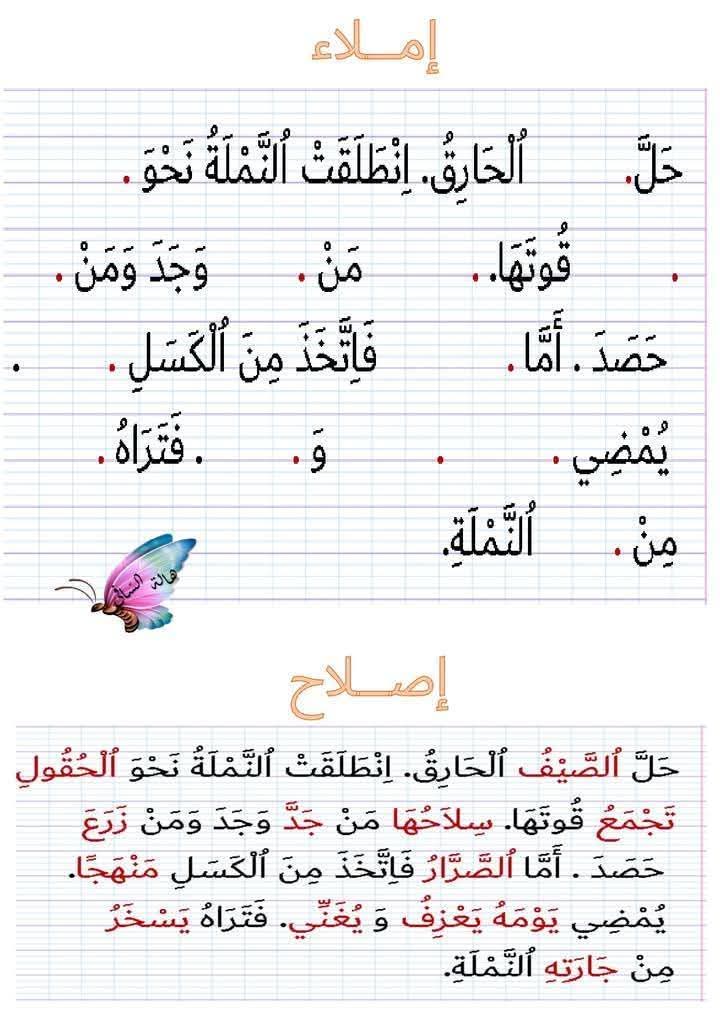 إمـــلاء
حَلَّ. ٱلْحَارِقُ. اِنْطَلَقَتْ ٱلنَّمْلَةُ نَحْوَ .
. قُوتَهَا. . مَنْ . وَجَدَ وَمَنْ .
حَصَدَ . أَمَّا . فَاِتَّخَذَ مِنَ ٱلْكَسَلِ . .
يُمْضِي . . وَ . . فَتَرَاهُ .
مِنْ . ٱلنَّمْلَةِ.
هالة السافي
إصـــلاح
حَلَّ ٱلصَّيْفُ ٱلْحَارِقُ. اِنْطَلَقَتْ ٱلنَّمْلَةُ نَحْوَ ٱلْحُقُولِ
تَجْمَعُ قُوتَهَا. سِلاَحُهَا مَنْ جَدَّ وَجَدَ وَمَنْ زَرَعَ
حَصَدَ . أَمَّا ٱلصَّرَّارُ فَاِتَّخَذَ مِنَ ٱلْكَسَلِ مَنْهَجًا.
يُمْضِي يَوْمَهُ يَعْزِفُ وَ يُغَنِّي. فَتَرَاهُ يَسْخَرُ
مِنْ جَارَتِهِ ٱلنَّمْلَةِ.